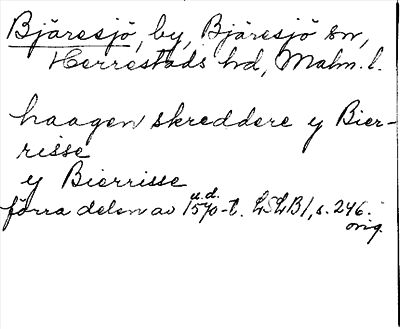 Bjäresjö, by, Bjäresjö sn,
Herrestads hd, Malm. l.
haagen skreddere y Bier-
risse
y Bierrisse
u.d.
förra delen av 1570-t. LLB1, s. 246.
orig.